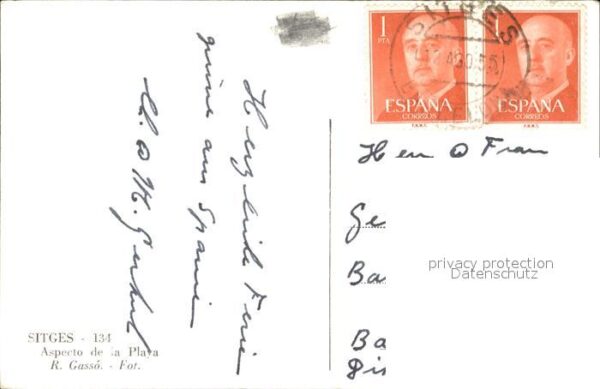 Herzliche Ferien
grüsse aus Spanien
SITGES - 134
Aspecto de la Playa
R. Gassó. - Fot.
1
PTA
ESPAÑA
CORREOS
F.N.M.T.
1
ESPAÑA
CORREOS
F.N.M.T.
SITGES
Herr & Frau
Ge
Ba
Ba
privacy protection
Datenschutz